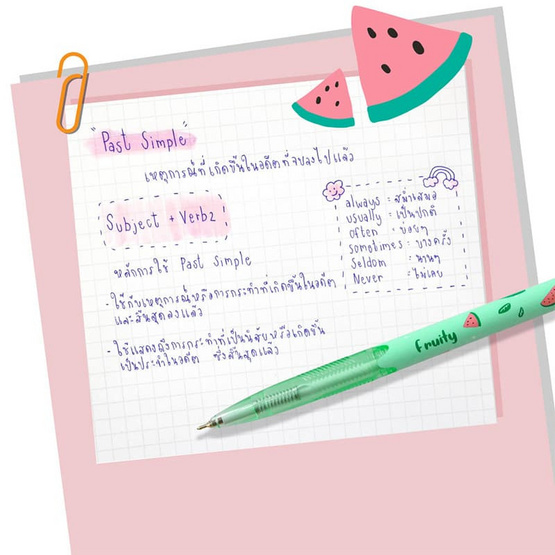 "Past Simple"
เหตุการณ์ที่เกิดขึ้นในอดีตที่จบลงไปแล้ว
Subject + Verb2
หลักการใช้ Past Simple
- ใช้กับเหตุการณ์หรือการกระทำที่เกิดขึ้นในอดีต
และสิ้นสุดลงแล้ว
- ใช้แสดงถึงการกระทำที่เป็นนิสัยหรือเกิดขึ้น
เป็นประจำในอดีต ซึ่งสิ้นสุดแล้ว
always : สม่ำเสมอ
usually : เป็นปกติ
often : บ่อยๆ
sometimes : บางครั้ง
Seldom : นานๆ
Never : ไม่เคย
Fruity